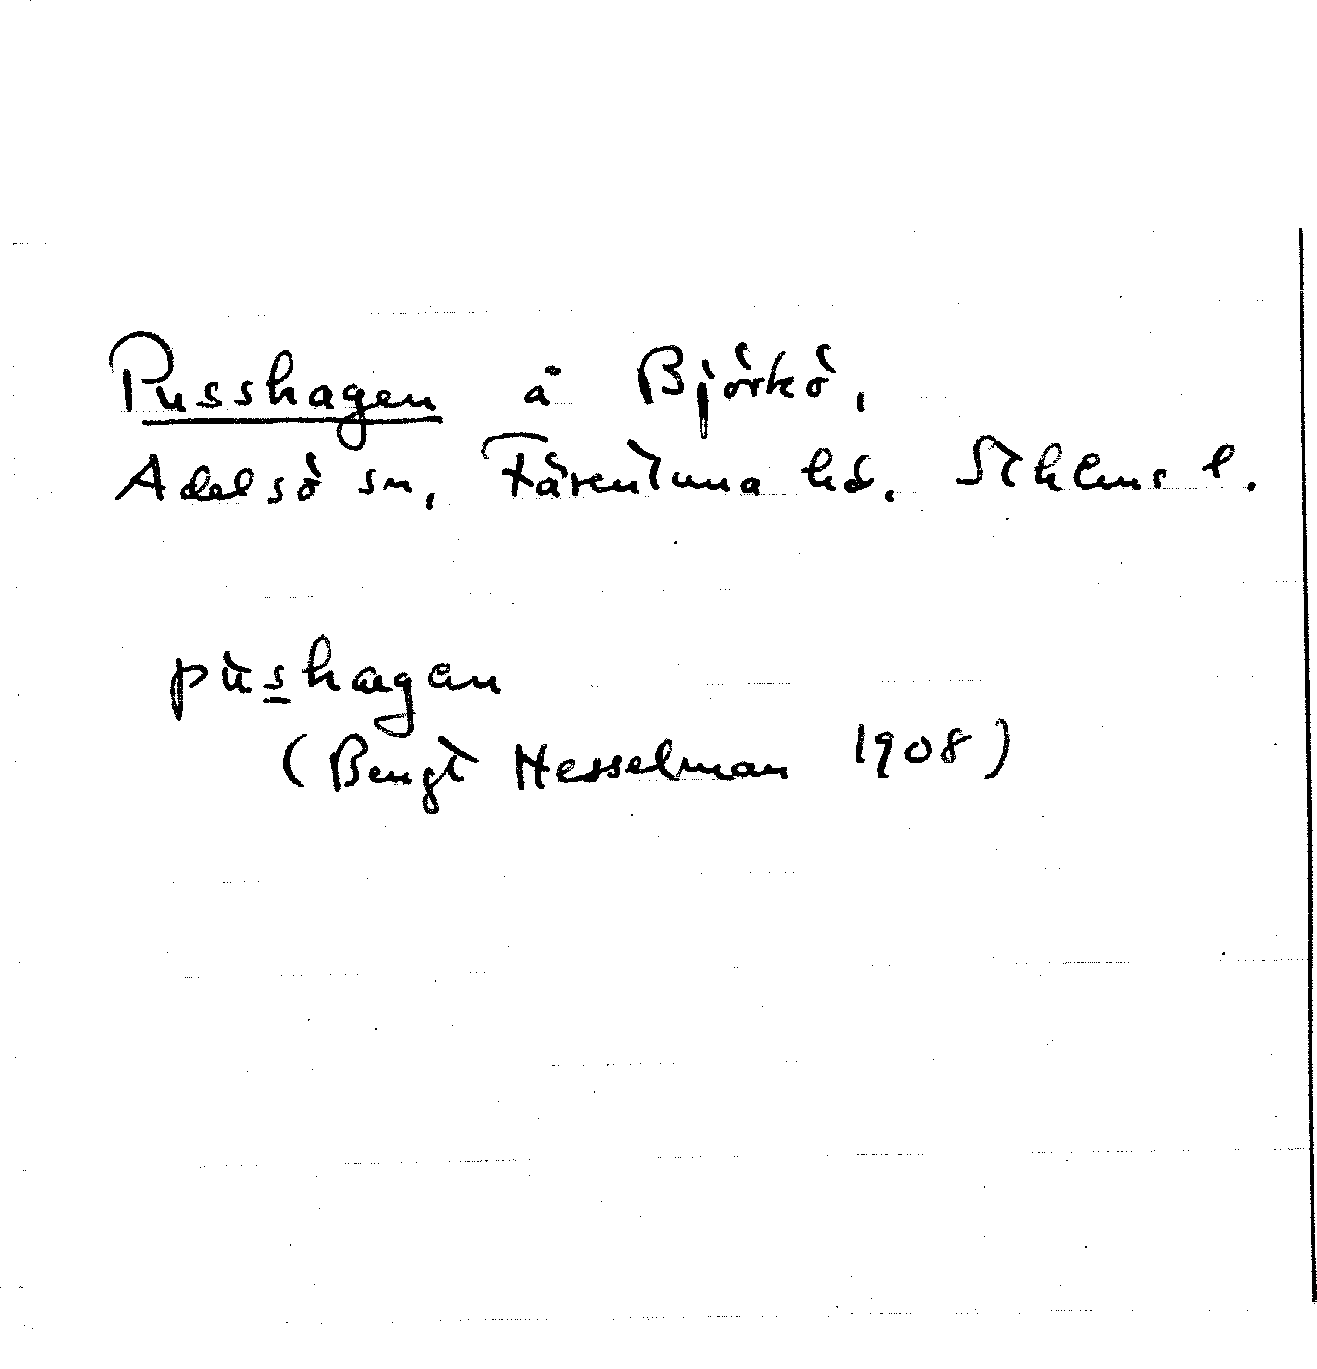 Pusshagen å Björkö,
Adelsö sn, Färentuna hd. Sthlms l.
pùshagan
(Bengt Hesselman 1908)